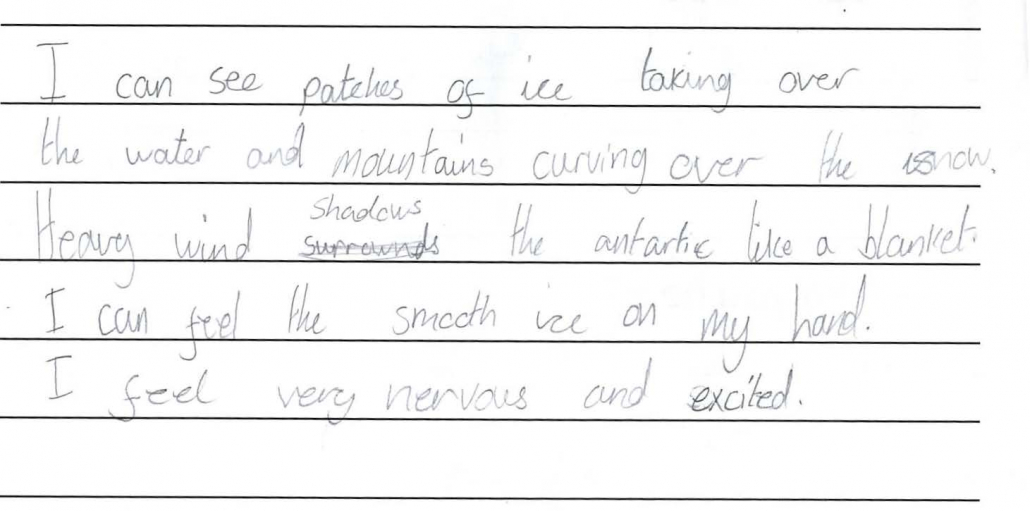 I can see patches of ice taking over
the water and mountains curving over the snow.
Heavy wind shadows the antartic like a blanket.
I can feel the smooth ice on my hand.
I feel very nervous and excited.